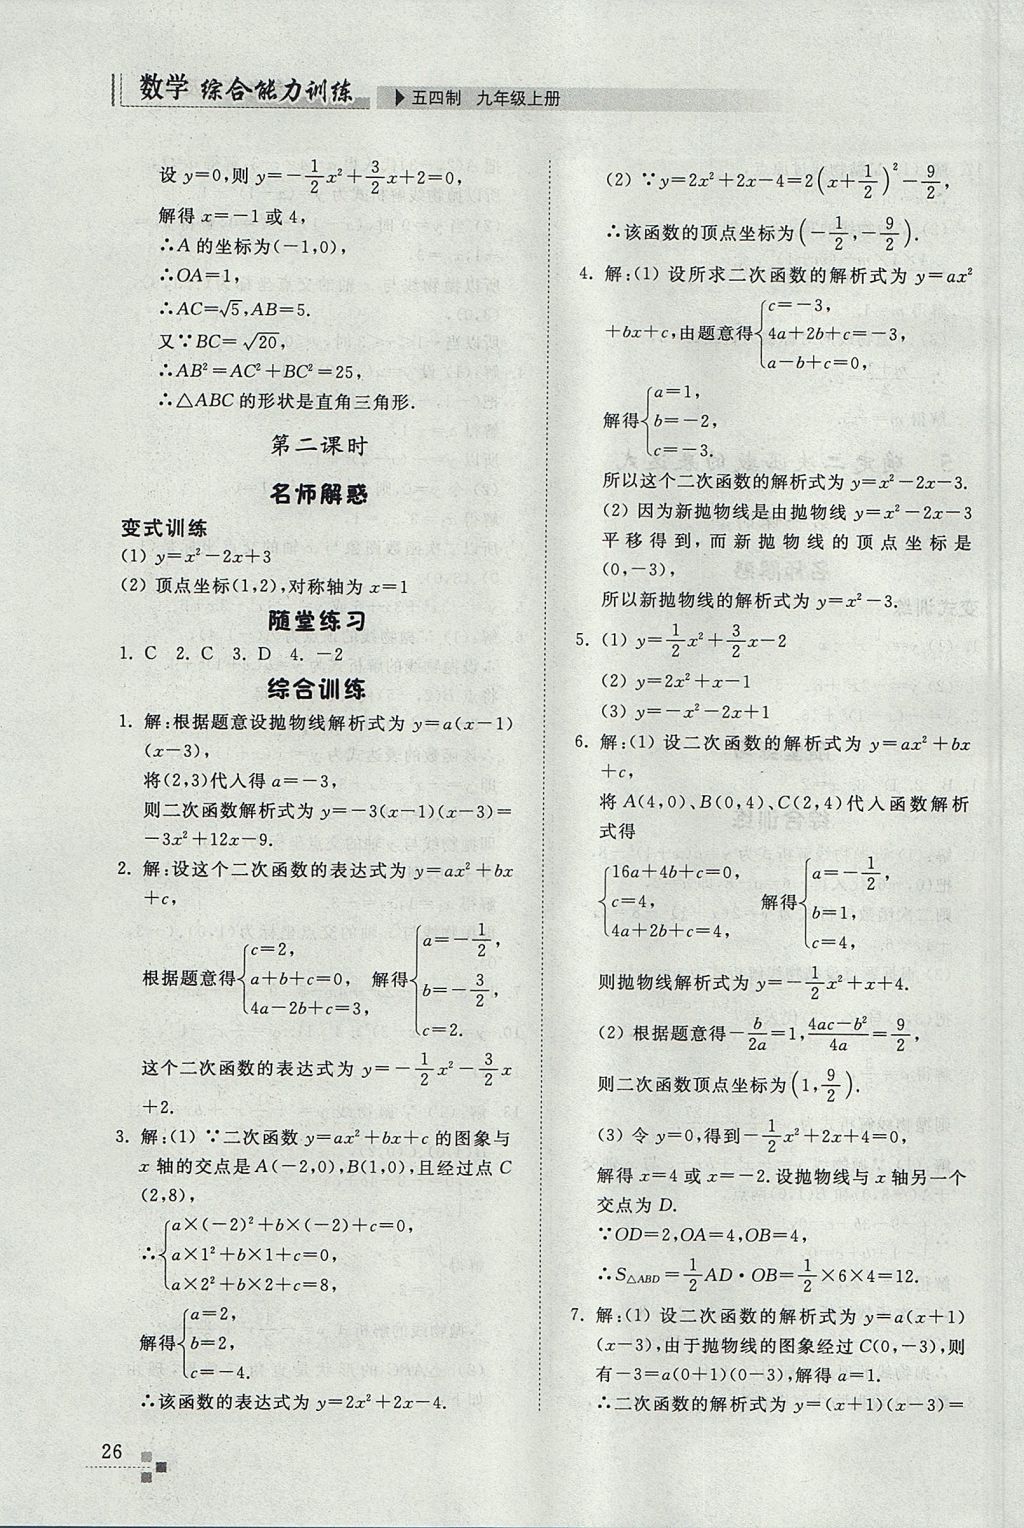 数学 综合能力训练 ▶五四制 九年级上册
设 y=0,则 y=-1/2x²+3/2x+2=0,
解得 x=-1 或 4,
∴A 的坐标为(-1,0),
∴OA=1,
∴AC=√5,AB=5.
又∵BC=√20,
∴AB²=AC²+BC²=25,
∴△ABC 的形状是直角三角形.
第二课时
名师解惑
变式训练
(1) y=x²-2x+3
(2) 顶点坐标(1,2),对称轴为 x=1
随堂练习
1. C 2. C 3. D 4. -2
综合训练
1. 解:根据题意设抛物线解析式为 y=a(x-1)
(x-3),
将(2,3)代人得 a=-3,
则二次函数解析式为 y=-3(x-1)(x-3)=
-3x²+12x-9.
2. 解:设这个二次函数的表达式为 y=ax²+bx
+c,
根据题意得{c=2, a+b+c=0, 4a-2b+c=3, 解得{a=-1/2, b=-3/2, c=2.
这个二次函数的表达式为 y=-1/2x²-3/2x
+2.
3. 解:(1) ∵二次函数 y=ax²+bx+c 的图象与
x 轴的交点是 A(-2,0),B(1,0),且经过点 C
(2,8),
∴{a×(-2)²+b×(-2)+c=0,
a×1²+b×1+c=0,
a×2²+b×2+c=8,
解得{a=2,
b=2,
c=-4.
∴该函数的表达式为 y=2x²+2x-4.
(2) ∵y=2x²+2x-4=2(x+1/2)²-9/2,
∴该函数的顶点坐标为(-1/2,-9/2).
4. 解:(1) 设所求二次函数的解析式为 y=ax²
+bx+c,由题意得{c=-3, 4a+2b+c=-3, a-b+c=0,
解得{a=1,
b=-2,
c=-3.
所以这个二次函数的解析式为 y=x²-2x-3.
(2) 因为新抛物线是由抛物线 y=x²-2x-3
平移得到,而新抛物线的顶点坐标是
(0,-3),
所以新抛物线的解析式为 y=x²-3.
5. (1) y=1/2x²+3/2x-2
(2) y=2x²+x-1
(3) y=-x²-2x+1
6. 解:(1) 设二次函数的解析式为 y=ax²+bx
+c,
将 A(4,0)、B(0,4)、C(2,4)代人函数解析
式得
{16a+4b+c=0, c=4, 4a+2b+c=4, 解得{a=-1/2, b=1, c=4,
则抛物线解析式为 y=-1/2x²+x+4.
(2) 根据题意得-b/2a=1,4ac-b²/4a=9/2,
则二次函数顶点坐标为(1,9/2).
(3) 令 y=0,得到-1/2x²+2x+4=0,
解得 x=4 或 x=-2.设抛物线与 x 轴另一个
交点为 D.
∵OD=2,OA=4,OB=4,
∴S△ABD=1/2AD·OB=1/2×6×4=12.
7. 解:(1) 设二次函数的解析式为 y=a(x+1)
(x-3),由于抛物线的图象经过 C(0,-3),则
有-3=a(0+1)(0-3),解得 a=1.
∴二次函数的解析式为 y=(x+1)(x-3)=
26